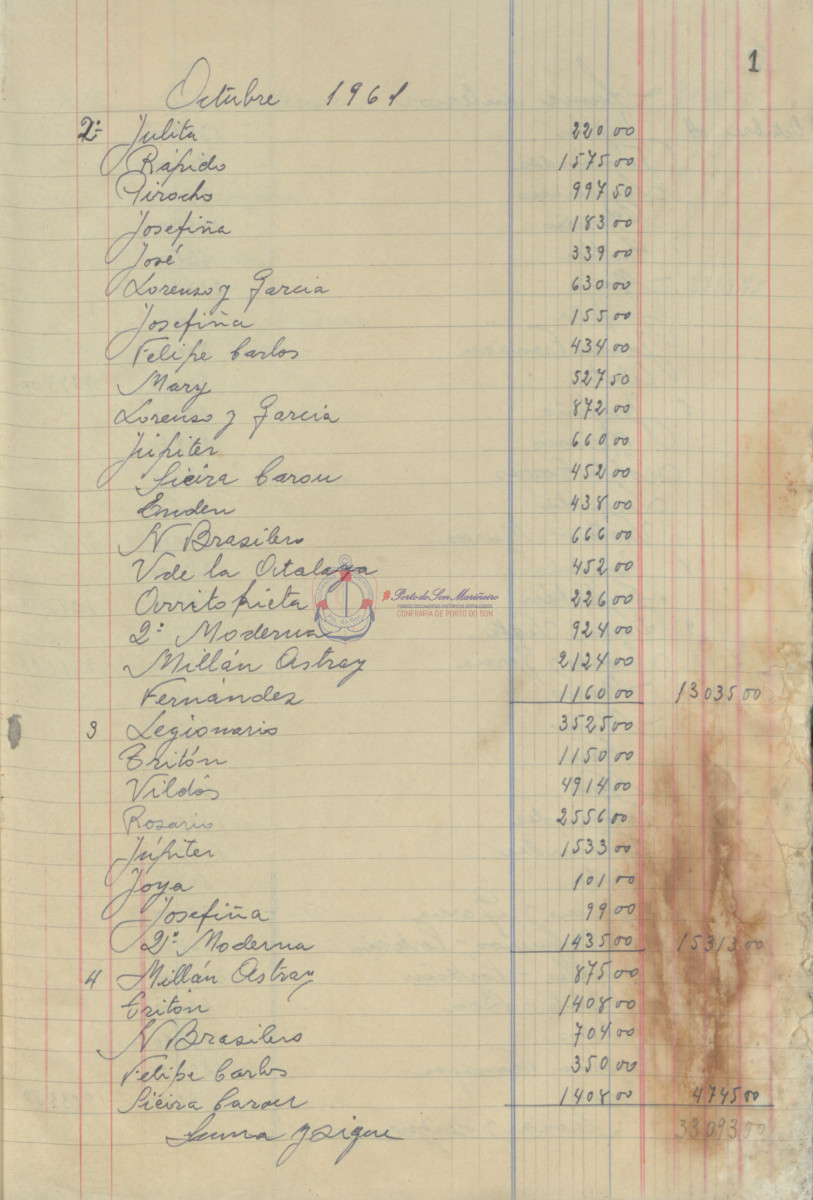 1
Octubre 1961
2- Julita 220 00
Rápido 1575 00
Pirocho 997 50
Josefiña 183 00
José 339 00
Lorenzo y Garcia 630 00
Josefiña 155 00
Felipe Carlos 434 00
Mary 527 50
Lorenzo y Garcia 872 00
Júpiter 660 00
Sieira Carou 452 00
Emden 438 00
N Brasilero 666 00
V de la Atalaya 452 00
Arritokieta 226 00
2ª Moderna 924 00
Millán Astray 2124 00
Fernández 1160 00 13035 00
3 Legionario 3525 00
Tritón 1150 00
Vildós 4914 00
Rosario 2556 00
Júpiter 1533 00
Joya 101 00
Josefiña 99 00
2ª Moderna 1435 00 15313 00
4 Millán Astray 875 00
Tritón 1408 00
N Brasilero 704 00
Felipe Carlos 350 00
Sieira Carou 1408 00 4745 00
Suma y sigue 33093 00
Porto do Son Mariñeiro
CONFRARÍA DE PORTO DO SON